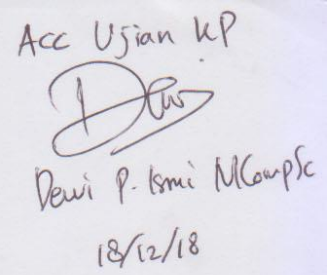 Acc Ujian KP
Dewi
Dewi P. Ismi MCompSc
18/12/18